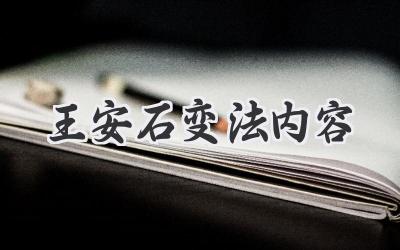 王安石变法内容